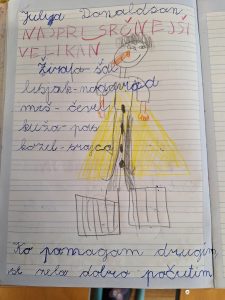 Julija Donaldson
NAJPRISRČNEJŠI
VELIKAN
Žirafa-šal
lisjak-nogavica
miš-čevelj
kuža-pas
kozel-srajca
Ko pomagam drugim,
se zelo dobro počutim